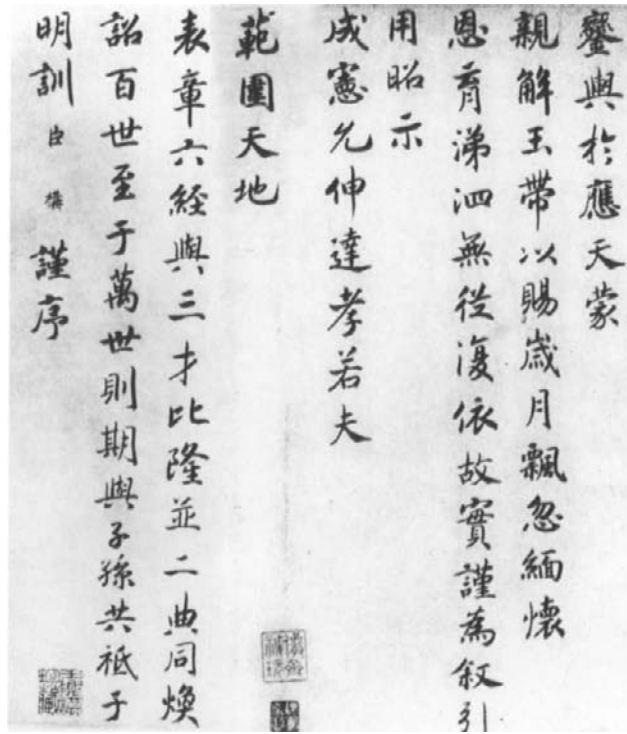 鑾輿於應天蒙
親解玉帶以賜歲月飄忽緬懷
恩育涕泗無從復依故實謹為敘引
用昭示
成憲允伸達孝若夫
範圍天地
表章六經與三才比隆並二典同煥
詔百世至于萬世則期與子孫共祗于
明訓臣構謹序